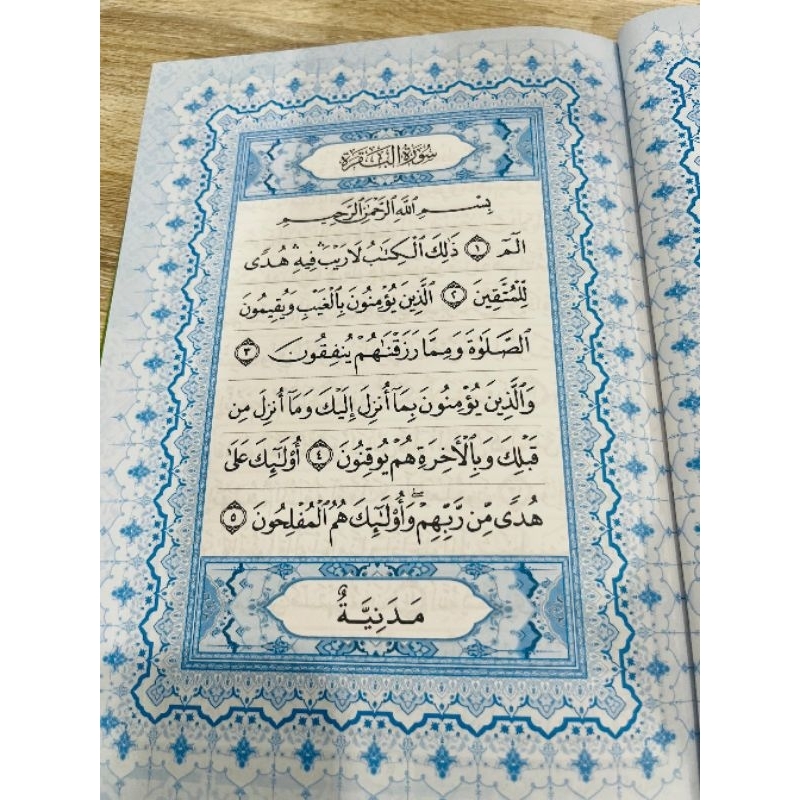 سُورَةُ الْبَقَرَةِ
بِسْمِ اللَّهِ الرَّحْمَٰنِ الرَّحِيمِ
الٓمٓ ۝١ ذَٰلِكَ الْكِتَابُ لَا رَيْبَ ۛ فِيهِ ۛ هُدًى
لِّلْمُتَّقِينَ ۝٢ الَّذِينَ يُؤْمِنُونَ بِالْغَيْبِ وَيُقِيمُونَ
الصَّلَاةَ وَمِمَّا رَزَقْنَاهُمْ يُنفِقُونَ ۝٣
وَالَّذِينَ يُؤْمِنُونَ بِمَا أُنزِلَ إِلَيْكَ وَمَا أُنزِلَ مِن
قَبْلِكَ وَبِالْآخِرَةِ هُمْ يُوقِنُونَ ۝٤ أُولَٰئِكَ عَلَىٰ
هُدًى مِّن رَّبِّهِمْ ۖ وَأُولَٰئِكَ هُمُ الْمُفْلِحُونَ ۝٥
مَدَنِيَّةٌ